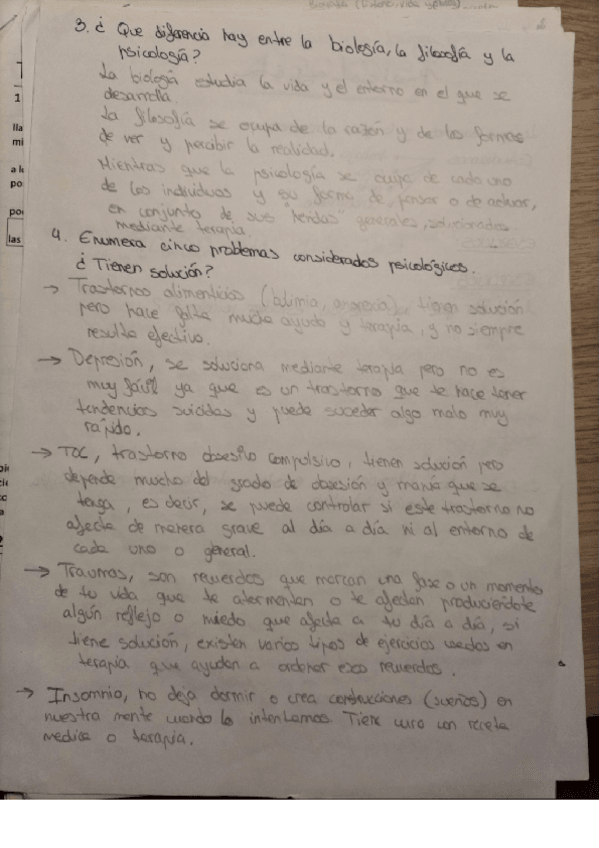 3. ¿ Que diferencia hay entre la biología, la filosofía y la
psicología?
La biología estudia la vida y el entorno en el que se
desarrolla.
La filosofía se ocupa de la razón y de las formas
de ver y percibir la realidad.
Mientras que la psicología se de cada uno
de los individuos y su forma de pensar o de actuar,
en conjunto de sus "heridas" generales, solucionados
mediante terapia.
4. Enumera cinco problemas considerados psicológicos.
¿ Tienen solución?
→ Trastornos alimenticios (bulimia, anorexia), tienen solución
pero hace falta mucha ayuda y terapia, y no siempre
resulta efectivo.
→ Depresión, se soluciona mediante terapia pero no es
muy fácil ya que es un trastorno que te hace tener
tendencias suicidas y puede suceder algo malo muy
rápido.
→ TOC, trastorno obsesivo compulsivo, tienen solución pero
depende mucho del grado de obsesión y manía que se
tenga, es decir, se puede controlar si este trastorno no
afecta de manera grave al día a día ni al entorno de
cada uno o general.
→ Traumas, son recuerdos que marcan una fase o un momento
de tu vida que te atormentan o te afectan produciendote
algún reflejo o miedo que afecta a tu día a día, si
tiene solución, existen varios tipos de ejercicios usados en
terapia que ayudan a ordenar esos recuerdos.
→ Insomnio, no deja dormir o crea construcciones (sueños) en
nuestra mente cuando lo intentamos. Tiene cura con receta
médica o terapia.